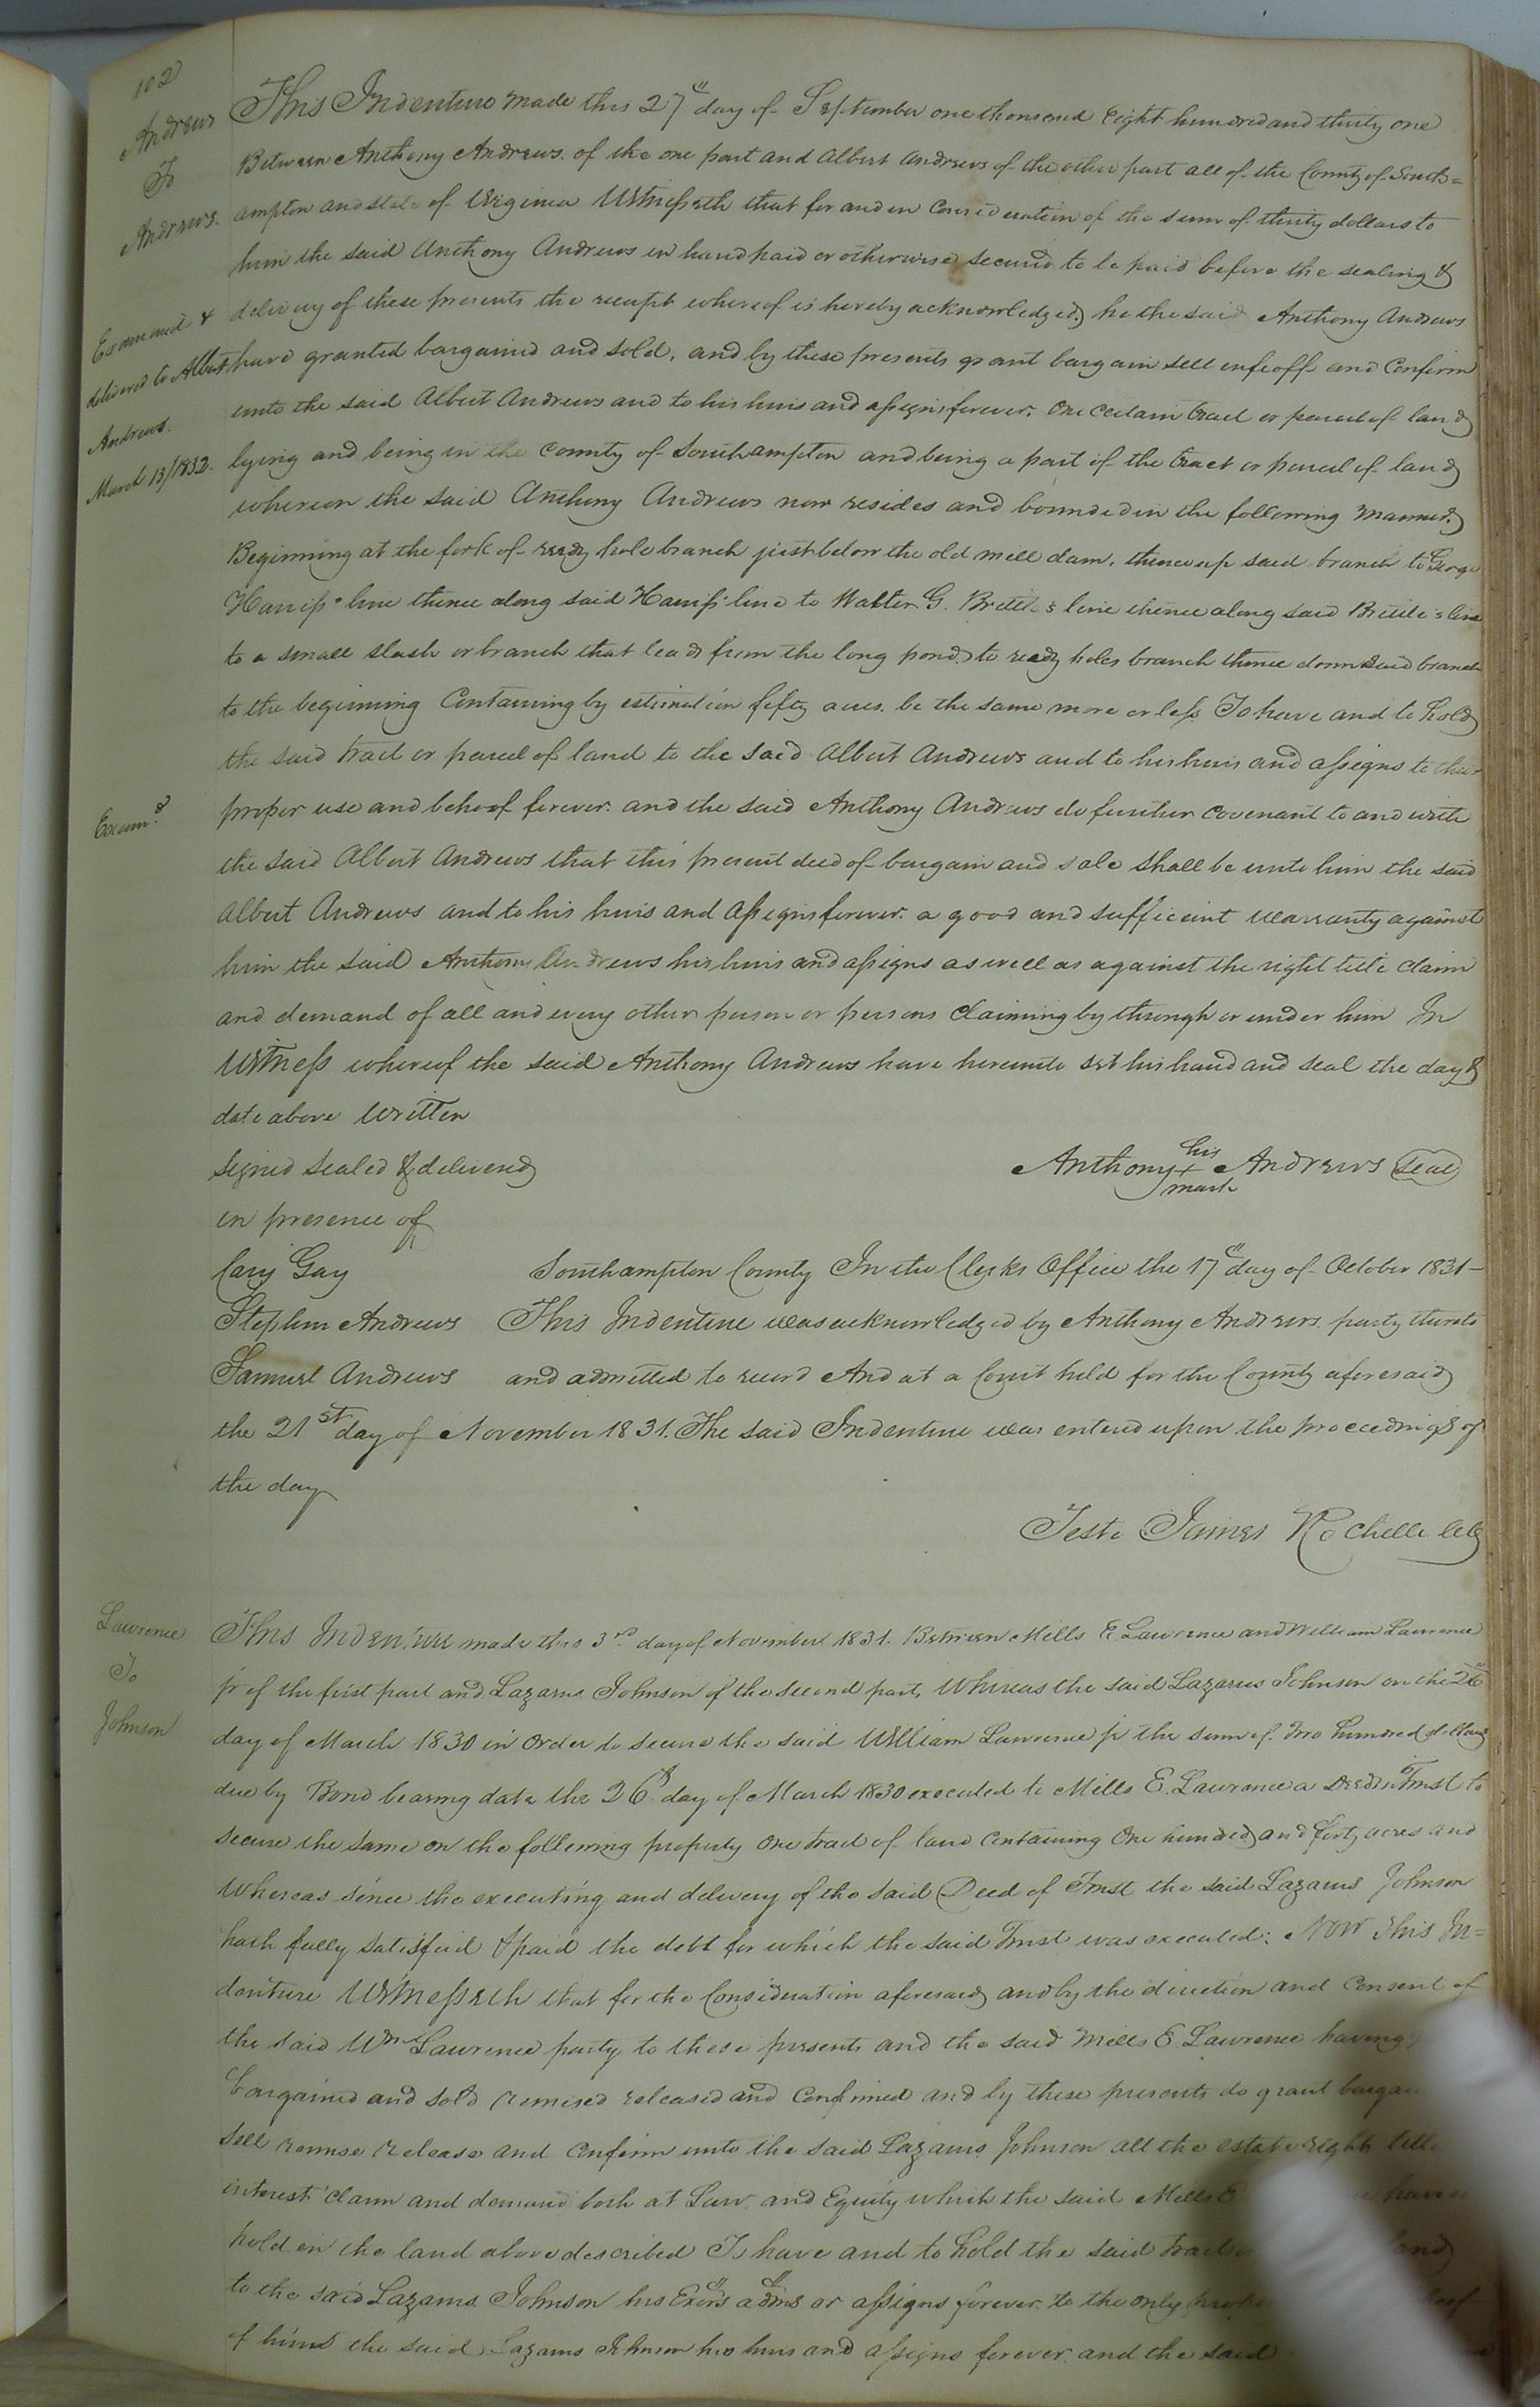 102
Andrews
To
Andrews.
This Indenture made this 27th day of September one thousand Eight hundred and thirty one
Between Anthony Andrews of the one part and Albert Andrews of the other part all of the County of South=
ampton and state of Virginia Witnesseth that for and in Consideration of the sum of thirty dollars to
him the said Anthony Andrews in hand paid or otherwise secured to be paid before the sealing &
delivery of these presents the receipt whereof is hereby acknowledged, he the said Anthony Andrews
have granted bargained and sold, and by these presents grant bargain sell enfeoff and Confirm
unto the said Albert Andrews and to his heirs and assigns forever. One Certain tract or parcel of land
lying and being in the County of Southampton and being a part of the tract or parcel of land
whereon the said Anthony Andrews now resides and bounded in the following manner,
Beginning at the fork of reedy hole branch just below the old mill dam, thence up said branch to George
Harriss' line thence along said Harriss' line to Walter G. Brittle's line thence along said Brittle's line
to a small slash or branch that leads from the long pond, to reedy holes branch thence down said branch
to the beginning Containing by estimation fifty acres. be the same more or less To have and to hold
the said tract or parcel of land to the said Albert Andrews and to his heirs and assigns to their
proper use and behoof forever. and the said Anthony Andrews do further covenant to and with
the said Albert Andrews that this present deed of bargain and sale shall be unto him the said
Albert Andrews and to his heirs and assigns forever. a good and sufficient warranty against
him the said Anthony Andrews his heirs and assigns as well as against the right title claim
and demand of all and every other person or persons Claiming by through or under him In
Witness whereof the said Anthony Andrews have hereunto set his hand and seal the day &
date above Written
Examined &
delivered to Albert
Andrews.
March 13/1832.
Examd
signed sealed & delivered
in presence of
Cary Gay
Stephen Andrews
Samuel Andrews
Anthony his + mark Andrews seal
Southampton County In the Clerks Office the 17th day of October 1831-
This Indenture was acknowledged by Anthony Andrews party thereto
and admitted to record And at a Court held for the County aforesaid
the 21st day of November 1831. The said Indenture was entered upon the proceedings of
the day
Teste James Rochelle
Lawrence
To
Johnson
This Indenture made this 3rd day of November 1831. Between Mills E. Lawrence and William Lawrence
jr of the first part and Lazarus Johnson of the second part, Whereas the said Lazarus Johnson on the 26th
day of March 1830 in order to secure the said William Lawrence jr the sum of Two hundred dollars
due by Bond bearing date the 26th day of March 1830 executed to Mills E. Lawrence a Deed in Trust to
secure the same on the following property One tract of land Containing One hundred and forty acres and
Whereas since the executing and delivery of the said Deed of Trust the said Lazarus Johnson
hath fully satisfied & paid the debt for which the said Trust was executed: Now This In=
denture Witnesseth that for the Consideration aforesaid and by the direction and Consent of
the said Wm Lawrence party to these presents and the said Mills E Lawrence having
bargained and sold remised released and Confirmed and by these presents do grant bargain
sell remise release and Confirm unto the said Lazarus Johnson all the estate right title
interest claim and demand both at Law and Equity which the said Mills E have or
hold in the land above described To have and to hold the said tract
to the said Lazarus Johnson his Exors adms or assigns forever. to the only proper
of him the said Lazarus Johnson his heirs and assigns forever. and the said